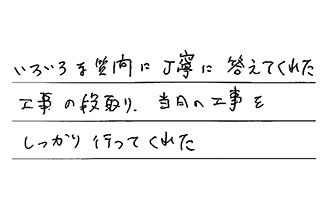 いろいろな質問に丁寧に答えてくれた
工事の段取り、当日の工事を
しっかり行ってくれた